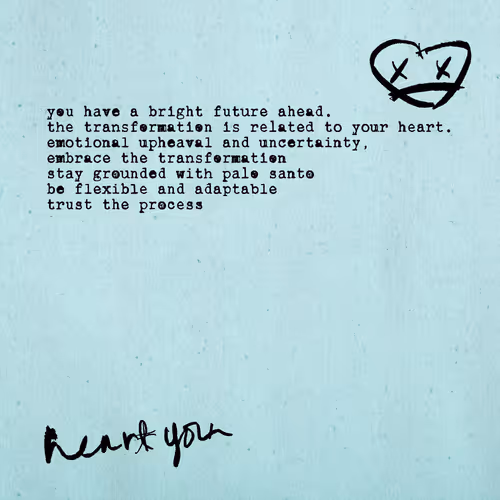 you have a bright future ahead.
the transformation is related to your heart.
emotional upheaval and uncertainty,
embrace the transformation
stay grounded with palo santo
be flexible and adaptable
trust the process
heart you